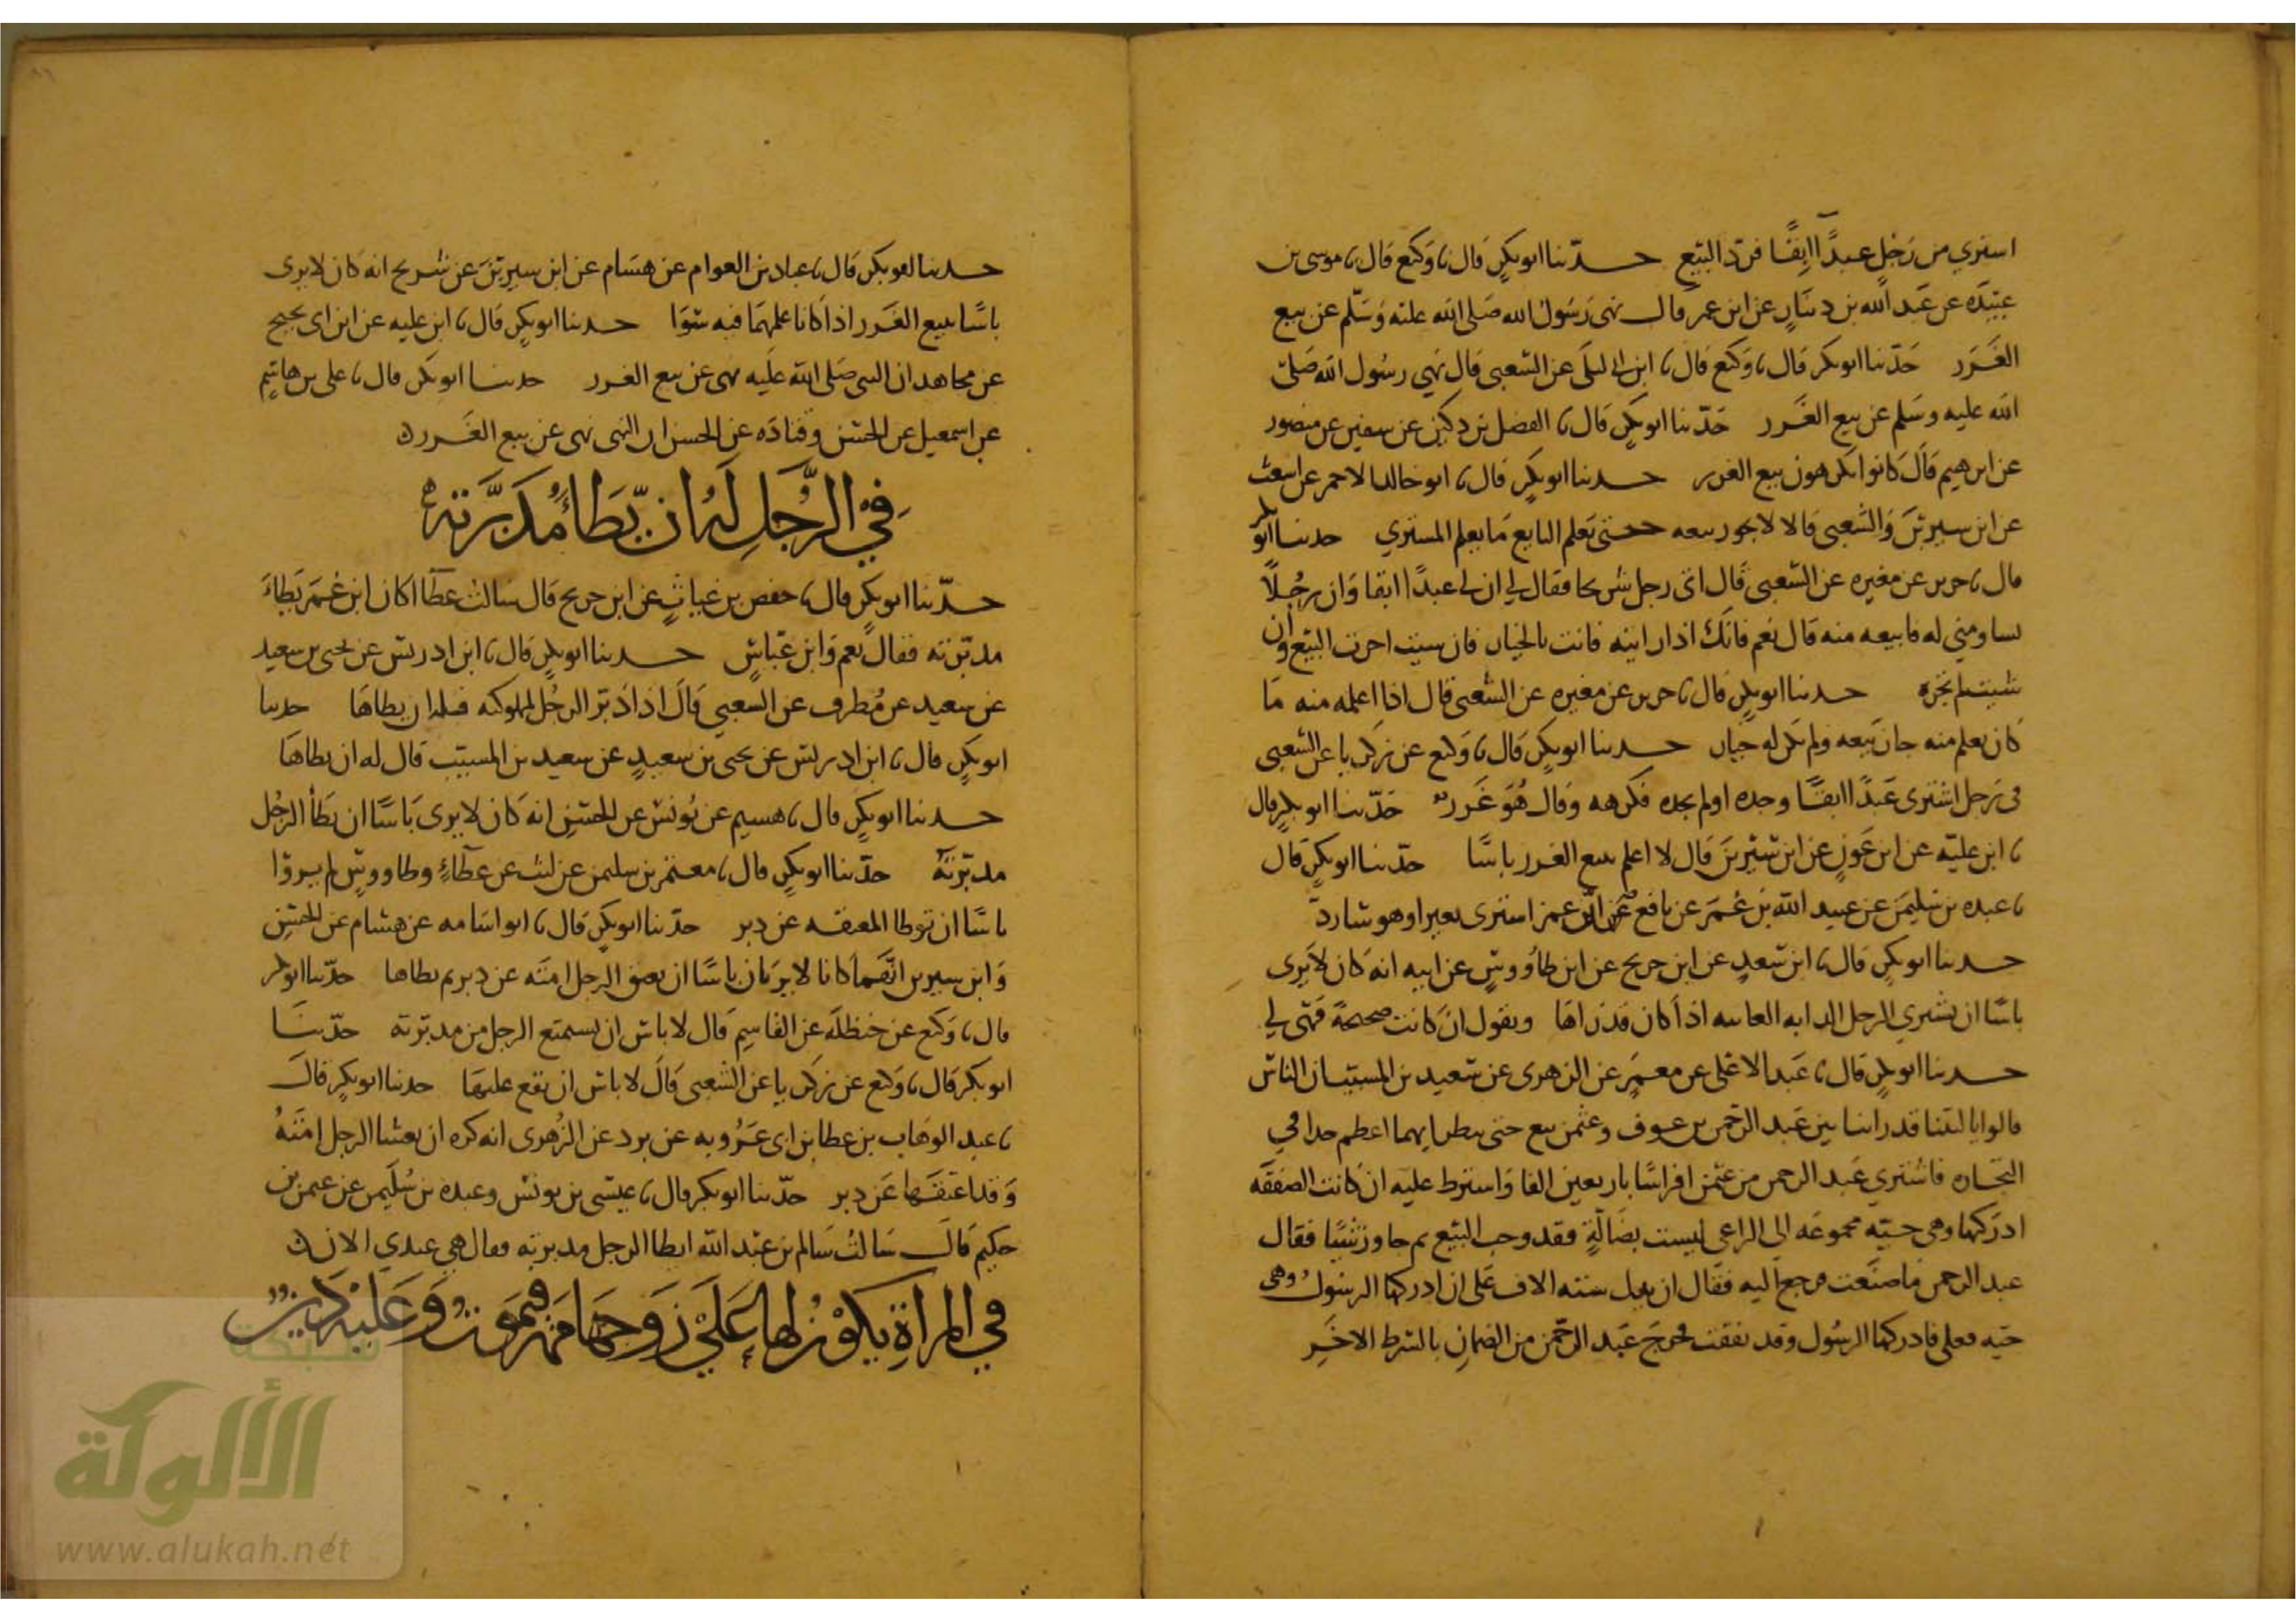 اشتري من رَجُلٍ عبدًا ابِقًا فرد البَيع حدّثنا ابو بكرٍ قال نا وَكيع قال نا موسى بن
عبَيدَه عن عَبد الله بن دينَارٍ عن ابن عمر قال نهى رَسُول الله صَلى الله عليه وَسَلّم عن بيع
الغَرَر حَدّثنا ابو بكر قال نا وَكيع قال نا ابن ابي ليلَى عن الشعبي قال نهي رسُول الله صَلىّ
الله عليه وسَلم عن بيع الغَرر حَدّثنا ابو بكرٍ قال نا الفضل بن دكين عن سفين عن منصور
عن ابرهيم قَالَ كانوا يكرهون بيع الغرر حدثنا ابو بكرٍ قال نا ابو خالد الاحمر عن اشعث
عن ابن سيرينَ وَالشعبي قالا لا يجوز بيعه حتى يَعلم البايع مَا يعلم المشتري حدثنا ابو بكر
قال نا جرير عن مغيره عن الشعبي قَال اتى رجل شريحا فقال لي ان لي عبدًا ابقا وَان رجُلًا
يساومني له فابيعه منه قال نعم فانكَ اذا رايته فانت بالخيار فان شيت اجزت البَيع وَان
شيت لم تجزه حدثنا ابو بكرٍ قال نا جرير عن مغيره عن الشعبي قال اذا اعلمه منه مَا
كان يعلم منه جاز بَيعه ولم يكن له خيار حدثنا ابو بكرٍ قَال نا وَكيع عن زكريا عن الشعبي
في رَجل اشترى عَبدًا ابقًا وجده او لم يجده فكرهه وَقال هُوَ غَرر حَدّثنا ابو بكرٍ قال
نا ابن عليّه عن ابن عَونٍ عن ابن سيرينَ قال لا اعلم ببيع الغرر باسًا حدّثنا ابو بكرٍ قَال
نا عبده بن سُليمَن عن عبيد الله بن عُمَر عن نافع عن ابن عمر اشترى بعيرا وهو شارد
حدثنا ابو بكرٍ قال نا ابن سَعدٍ عن ابن جريج عن ابن طاووسٍ عن ابيه انه كان لا يَرى
باسًا ان يشتري الرجل الدابه الغايبه اذا كان قد رَاهَا ويقول ان كانت صحيحةً فهي لي
حدثنا ابو بكرٍ قال نا عَبد الاعلى عن معمَرٍ عن الزهرى عن سَعيد بن المسَيب ان الناس
قالوا يا ليتنا قد راينا بين عَبد الرحمن بن عوف وعثمن بيع حتى ننظر ايهما اعظم جدا في
التجاره فاشتري عَبد الرحمن من عثمن افراسًا باربعين الفا وَاشترط عليه ان كانت الصفقَه
ادركتها وهي حيّه مجموعَه الى الراعي ليست بضالةٍ فقد وجب البَيع ثم جاوز شيًا فقال
عبد الرحمن مَا صنَعت فرجع اليه فقَال ان بعل سته الاف عَلى ان ادركها الرسُول وهى
حيّه فعلي فادركها الرسُول وقد نفقت فخرج عَبد الرحمن من الضمان بالشرط الاخَرِ
حدثنا ابو بكر قَال نا عباد بن العوام عن هشَام عن ابن سيرينَ عن شريح انه كان لا يرى
باسًا ببيع الغَرر اذا كانا علمهمَا فيه سَوَا حدثنا ابو بكرٍ قال نا ابن عليه عن ابن ابى نجيح
عن مجاهد ان النبي صَلى الله عَليه نهى عن بيع الغرر حدثنا ابو بكر قال نا على بن هاشِمٍ
عن اسمعيل عن الحسَن وَقتادَه عن الحسن ان النبي نهى عن بيع الغَرر
في الرَّجُلِ لَهُ ان يَطَأ مُدَبَّرَتَهُ
حدّثنا ابو بكرٍ قال نا حفص بن غياثٍ عن ابن جريج قال سَالتُ عطَآ اكان ابن عُمَرَ يَطاءُ
مدبّرته فقال نعم وَابن عَبّاسٍ حدثنا ابو بكرٍ قال نا ابن ادريس عن يحيى بن سعيد
عن سعيد عن مُطرف عن الشعبي قالَ اذا دَبّر الرجُل مملوكته فله ان يطاهَا حدثنا
ابو بكرٍ قال نا ابن ادريس عن يحيى بن سعيدٍ عن سعيد بن المسيّب قال له ان يطاهَا
حدثنا ابو بكرٍ قال نا هشيم عن يُونس عن الحسَنِ انه كان لا يرى بَاسًا ان يَطأ الرجُل
مدبّرته حدّثنا ابو بكرٍ قال نا معتمر بن سليمن عن ليث عن عطَآءٍ وطاووسٍ لم يروا
باسًا ان توطا المعتقه عن دبر حدّثنا ابو بكرٍ قال نا ابو اسَامه عن هشام عن الحسَنِ
وَابن سيرين انّهَما كانا لا يرَيان باسًا ان يعتق الرجل امتَه عن دبر ثم يطاها حدّثنا ابو بكر
قال نا وَكيع عن حنظله عن القاسِم قال لا باس ان يستمتع الرجل من مدبّرته حدّثنَا
ابو بكر قال نا وَكيع عن زكريا عن الشعبي قالَ لا باس ان يقع عليهَا حدثنا ابو بكرٍ قالَ
نا عبد الوهاب بن عطا بن ابى عَرُوبه عن برد عن الزهرى انه كره ان يغشا الرجل امَتَهُ
وَقد اعتقهَا عن دبر حدّثنا ابو بكر قال نا عيسَى بن يونس وعبده بن سُليمَن عن عمر بن
حكيم قالَ سَالتُ سَالم بن عَبد الله ايطا الرجل مدبرته فقال هي عندي الان
في المراةِ يَكونُ لها عَلَي زَوجهَا مَهر فيمَوت وَعَليه دَين
شبكة
الألوكة
www.alukah.net